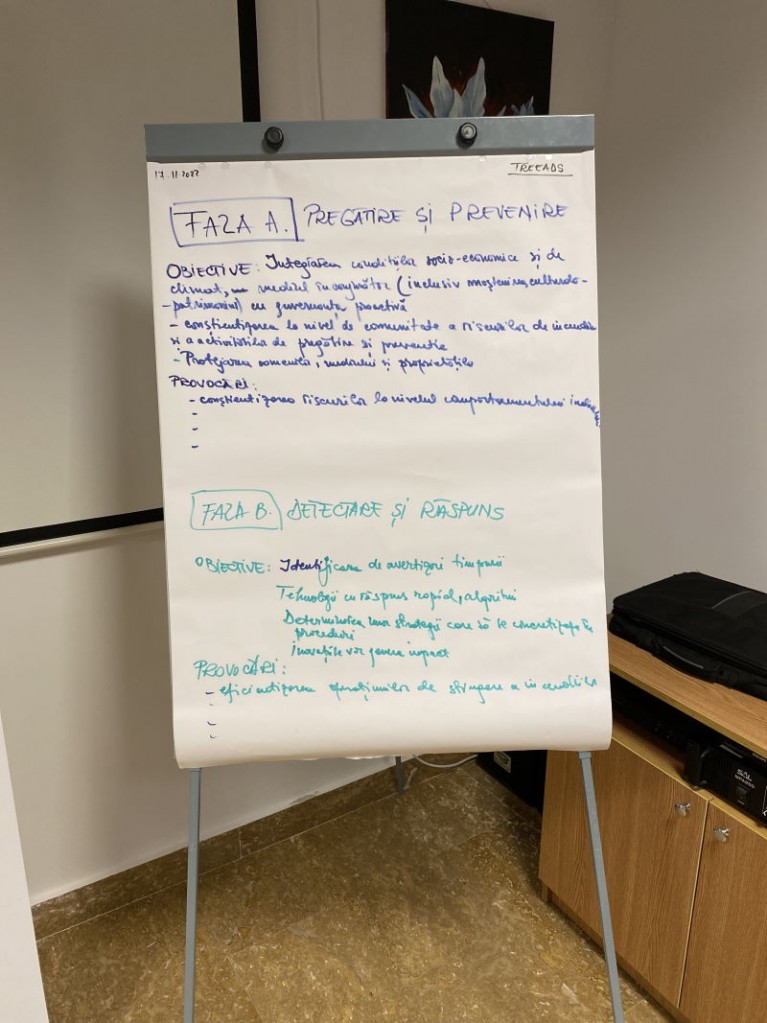 17.11.2022
TREEADS
FAZA A. PREGĂTIRE ȘI PREVENIRE
OBIECTIVE: Integrarea condițiilor socio-economice și de
climat, mediul înconjurător (inclusiv moștenirea culturală-
-patrimoniu) cu guvernanța proactivă
- conștientizarea la nivel de comunitate a riscurilor de incendiu
și a activităților de pregătire și prevenție
- Protejarea oamenilor, mediului și proprietăților
PROVOCĂRI:
- conștientizarea riscurilor la nivelul comportamentului
-
-
-
FAZA B. DETECTARE ȘI RĂSPUNS
OBIECTIVE: Identificarea de avertizări timpurii
Tehnologii cu răspuns rapid, algoritmi
Determinarea unor strategii care să se concretizeze în
proceduri
Inovațiile vor genera impact
PROVOCĂRI:
- eficientizarea operațiunilor de stingere a incendiilor
-
-
-